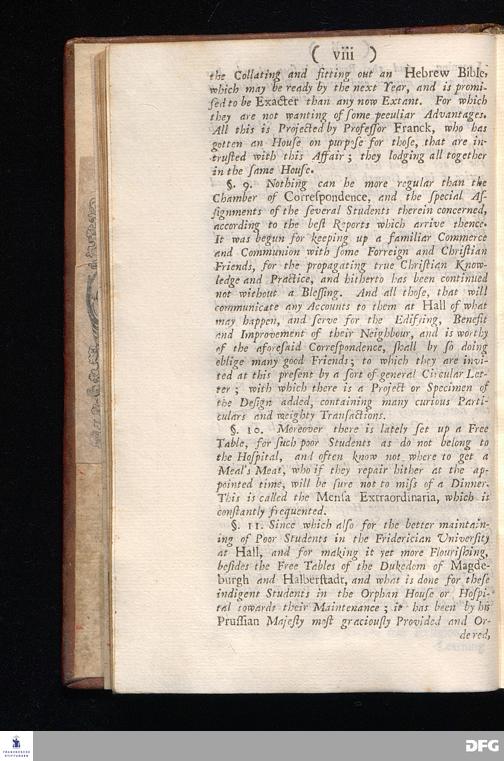 ( viii )
the Collating and fitting out an Hebrew Bible,
which may be ready by the next Year, and is promi-
ſed to be Exacter than any now Extant. For which
they are not wanting of ſome peculiar Advantages.
All this is Projected by Profeſſor Franck, who has
gotten an Houſe on purpoſe for thoſe, that are in-
truſted with this Affair; they lodging all together
in the ſame Houſe.
§. 9. Nothing can be more regular than the
Chamber of Correſpondence, and the ſpecial Aſ-
ſignments of the ſeveral Students therein concerned,
according to the beſt Reports which arrive thence.
It was begun for keeping up a familiar Commerce
and Communion with ſome Forreign and Chriſtian
Friends, for the propagating true Chriſtian Know-
ledge and Practice, and hitherto has been continued
not without a Bleſſing. And all thoſe, that will
communicate any Accounts to them at Hall of what
may happen, and ſerve for the Edifying, Benefit
and Improvement of their Neighbour, and is worthy
of the aforeſaid Correſpondence, ſhall by ſo doing
oblige many good Friends; to which they are invi-
ted at this preſent by a ſort of general Circular Let-
ter; with which there is a Project or Specimen of
the Deſign added, containing many curious Parti-
culars and weighty Tranſactions.
§. 10. Moreover there is lately ſet up a Free
Table, for ſuch poor Students as do not belong to
the Hoſpital, and often know not where to get a
Meal's Meat, who if they repair hither at the ap-
pointed time, will be ſure not to miſs of a Dinner.
This is called the Menſa Extraordinaria, which is
conſtantly frequented.
§. 11. Since which alſo for the better maintain-
ing of Poor Students in the Friderician Univerſity
at Hall, and for making it yet more Flouriſhing,
beſides the Free Tables of the Dukedom of Magde-
burgh and Halberſtadt, and what is done for theſe
indigent Students in the Orphan Houſe or Hoſpi-
tal towards their Maintenance; it has been by his
Pruſſian Majeſty moſt graciouſly Provided and Or-
dered,
FRANCKESCHE
STIFTUNGEN
DFG